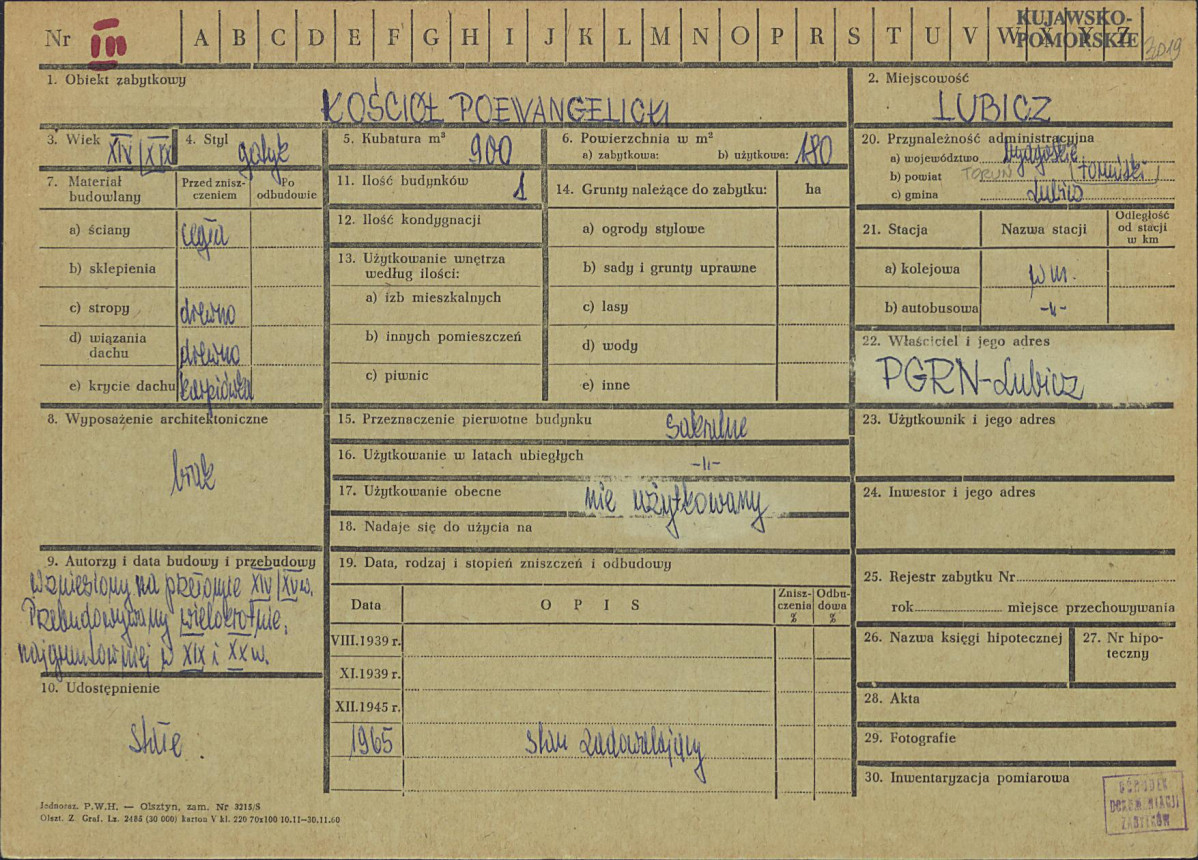 Nr III A B C D E F G H I J K L M N O P R S T U V W X Y Z
KUJAWSKO-
POMORSKIE
3019
1. Obiekt zabytkowy
KOŚCIÓŁ POEWANGELICKI
2. Miejscowość
LUBICZ
3. Wiek XIV/XIX
4. Styl gotyk
5. Kubatura m³ 900
6. Powierzchnia w m²
a) zabytkowa: b) użytkowa: 180
20. Przynależność administracyjna
a) województwo bydgoskie
b) powiat TORUŃ (toruński)
c) gmina Lubicz
7. Materiał budowlany
Przed znisz-
czeniem
Po
odbudowie
a) ściany cegła
b) sklepienia
c) stropy drewno
d) wiązania
dachu drewno
e) krycie dachu karpiówka
8. Wyposażenie architektoniczne
brak
9. Autorzy i data budowy i przebudowy
Wzniesiony na przełomie XIV/XV w.
Przebudowywany wielokrotnie,
najgruntowniej w XIX i XX w.
10. Udostępnienie
stałe.
Jednoraz. P.W.H. — Olsztyn, zam. Nr 3215/S
Olszt. Z. Graf. Lz. 2485 (30 000) karton V kl. 220 70x100 10.11—30.11.60
11. Ilość budynków 1
12. Ilość kondygnacji
13. Użytkowanie wnętrza
według ilości:
a) izb mieszkalnych
b) innych pomieszczeń
c) piwnic
14. Grunty należące do zabytku: ha
a) ogrody stylowe
b) sady i grunty uprawne
c) lasy
d) wody
e) inne
15. Przeznaczenie pierwotne budynku sakralne
16. Użytkowanie w latach ubiegłych -"-
17. Użytkowanie obecne nie użytkowany
18. Nadaje się do użycia na
19. Data, rodzaj i stopień zniszczeń i odbudowy
Data
OPIS
Znisz-
czenia
%
Odbu-
dowa
%
VIII.1939 r.
XI.1939 r.
XII.1945 r.
1965 stan zadowalający
21. Stacja
Nazwa stacji
Odległość
od stacji
w km
a) kolejowa w m.
b) autobusowa -"-
22. Właściciel i jego adres
PGRN-Lubicz
23. Użytkownik i jego adres
24. Inwestor i jego adres
25. Rejestr zabytku Nr
rok miejsce przechowywania
26. Nazwa księgi hipotecznej
27. Nr hipo-
teczny
28. Akta
29. Fotografie
30. Inwentaryzacja pomiarowa
OŚRODEK
DOKUMENTACJI
ZABYTKÓW